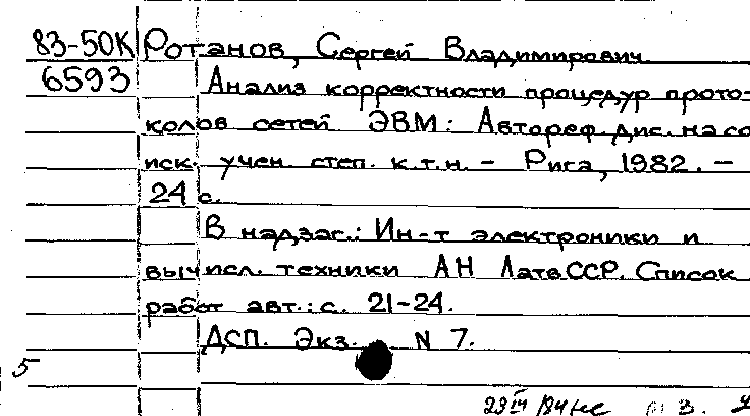 83-50К Ротанов, Сергей Владимирович
6593 Анализ корректности процедур прото-
колов сетей ЭВМ: Автореф. дис. на со
иск. учен. степ. к.т.н. – Рига, 1982. –
24 с.
В надзаг.: Ин-т электроники и
вычисл. техники АН Латв.ССР. Список
работ авт.: с. 21-24.
ДСП. Экз. N 7.
5